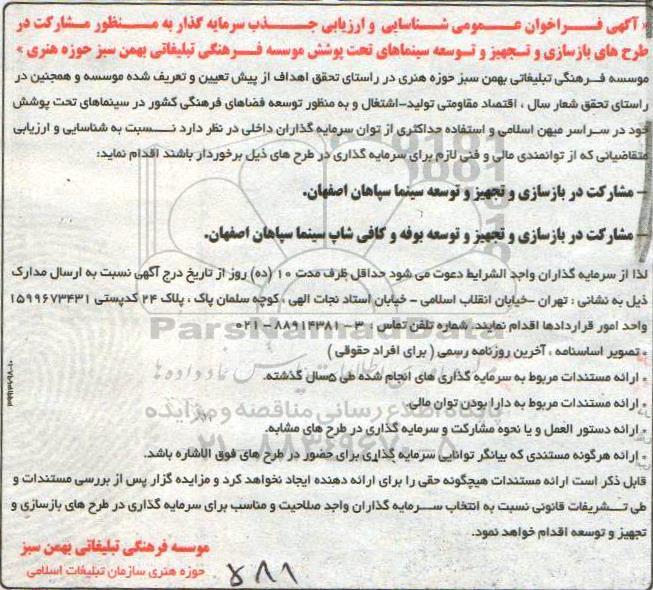 « آگهی فراخوان عمومی شناسایی و ارزیابی جذب سرمایه گذار به منظور مشارکت در
طرح های بازسازی و تجهیز و توسعه سینماهای تحت پوشش موسسه فرهنگی تبلیغاتی بهمن سبز حوزه هنری »
موسسه فرهنگی تبلیغاتی بهمن سبز حوزه هنری در راستای تحقق اهداف از پیش تعیین و تعریف شده موسسه و همچنین در
راستای تحقق شعار سال ، اقتصاد مقاومتی تولید-اشتغال و به منظور توسعه فضاهای فرهنگی کشور در سینماهای تحت پوشش
خود در سراسر میهن اسلامی و استفاده حداکثری از توان سرمایه گذاران داخلی در نظر دارد نسبت به شناسایی و ارزیابی
متقاضیانی که از توانمندی مالی و فنی لازم برای سرمایه گذاری در طرح های ذیل برخوردار باشند اقدام نماید:
– مشارکت در بازسازی و تجهیز و توسعه سینما سپاهان اصفهان.
– مشارکت در بازسازی و تجهیز و توسعه بوفه و کافی شاپ سینما سپاهان اصفهان.
لذا از سرمایه گذاران واجد الشرایط دعوت می شود حداقل ظرف مدت ۱۰ (ده) روز از تاریخ درج آگهی نسبت به ارسال مدارک
ذیل به نشانی : تهران -خیابان انقلاب اسلامی - خیابان استاد نجات الهی ، کوچه سلمان پاک ، پلاک ۲۴ کدپستی ۱۵۹۹۶۷۳۴۳۱
واحد امور قراردادها اقدام نمایند. شماره تلفن تماس : ۳ – ۸۸۹۱۴۳۸۱ – ۰۲۱
* تصویر اساسنامه ، آخرین روزنامه رسمی ( برای افراد حقوقی )
* ارائه مستندات مربوط به سرمایه گذاری های انجام شده طی ۵سال گذشته.
* ارائه مستندات مربوط به دارا بودن توان مالی.
* ارائه دستور العمل و یا نحوه مشارکت و سرمایه گذاری در طرح های مشابه.
* ارائه هرگونه مستندی که بیانگر توانایی سرمایه گذاری برای حضور در طرح های فوق الاشاره باشد.
قابل ذکر است ارائه مستندات هیچگونه حقی را برای ارائه دهنده ایجاد نخواهد کرد و مزایده گزار پس از بررسی مستندات و
طی تشریفات قانونی نسبت به انتخاب سرمایه گذاران واجد صلاحیت و مناسب برای سرمایه گذاری در طرح های بازسازی و
تجهیز و توسعه اقدام خواهد نمود.
موسسه فرهنگی تبلیغاتی بهمن سبز
حوزه هنری سازمان تبلیغات اسلامی
ParsNamadData
پایگاه اطلاع رسانی مناقصه و مزایده